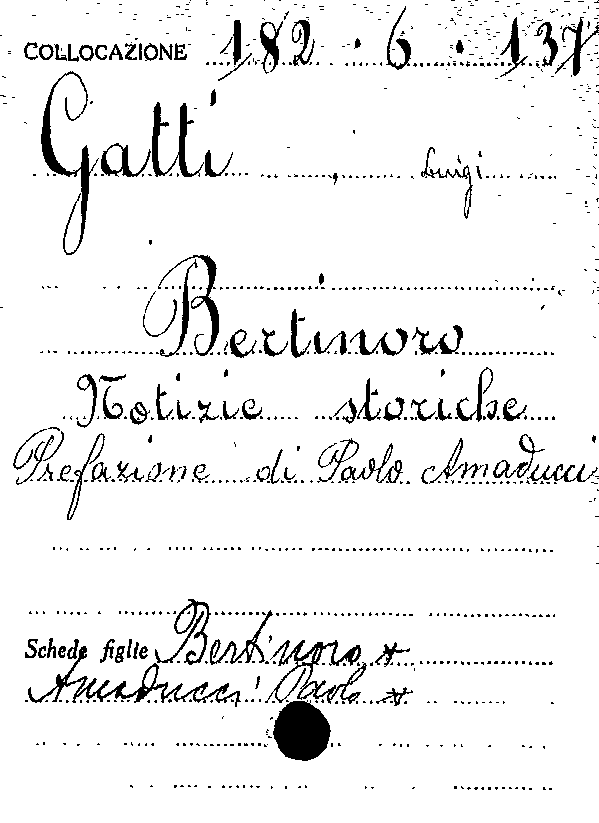 COLLOCAZIONE 182 . 6 . 137
Gatti , Luigi
Bertinoro
Notizie storiche
Prefazione di Paolo Amaducci
Schede figlie Bertinoro *
Amaducci Paolo *